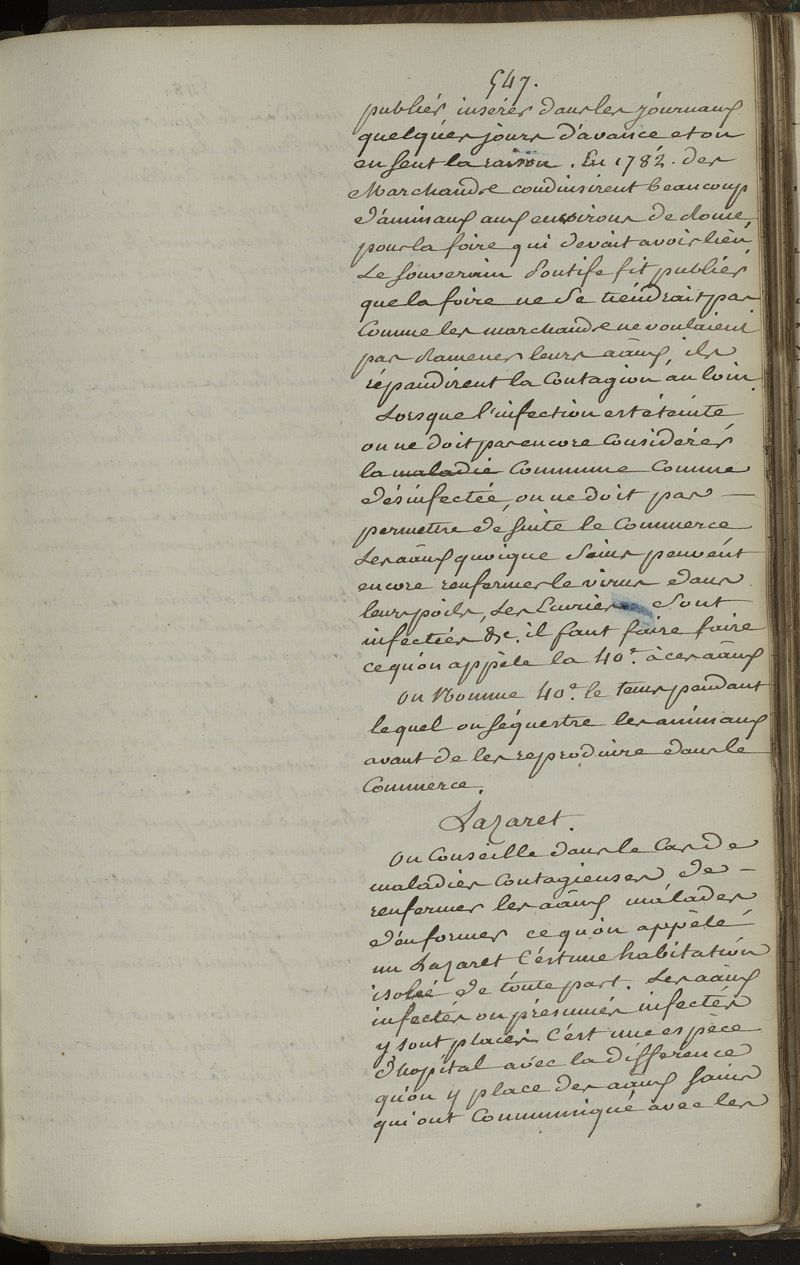 547.
publiés insérés dans les journaux
quelques jours d'avance et on
en sent la raison. En 1782. des
Marchands conduisirent beaucoup
d'animaux aux environs de Rome
pour la foire qui devait avoir lieu,
Le Souverain Pontife fit publier
que la foire ne se tiendrait pas
Comme les marchands ne voulaient
pas ramener leurs aãux, ils
répandirent la Contagion au loin.
Lorsque l'infection est éteinte
on ne doit pas encore Considérer
la maladie Commune Comme
désinfectée, on ne doit pas —
permettre de suite le Commerce
Les aãux quoique Sains peuvent
encore renfermer le virus dans
leurs poils, Les Ecuries Sont
infectées &c. il faut faire faire
ce qu'on appèle la 40.e à ces aãux
On Nomme 40.e le tems pendant
lequel on séquestre les animaux
avant de les reproduire dans le
Commerce.
Lazaret.
On Conseille dans le Cas de
maladies Contagieuses, de —
renfermer les aãux malades
d'en former ce qu'on appèle
un Lazaret C'est une habitation
isolée de toute part. Les aãux
infectés ou présumés infectés
y sont placés. C'est une espèce
d'hopital avec la difference
qu'on y place des aãux sains
qui ont Communiqué avec les